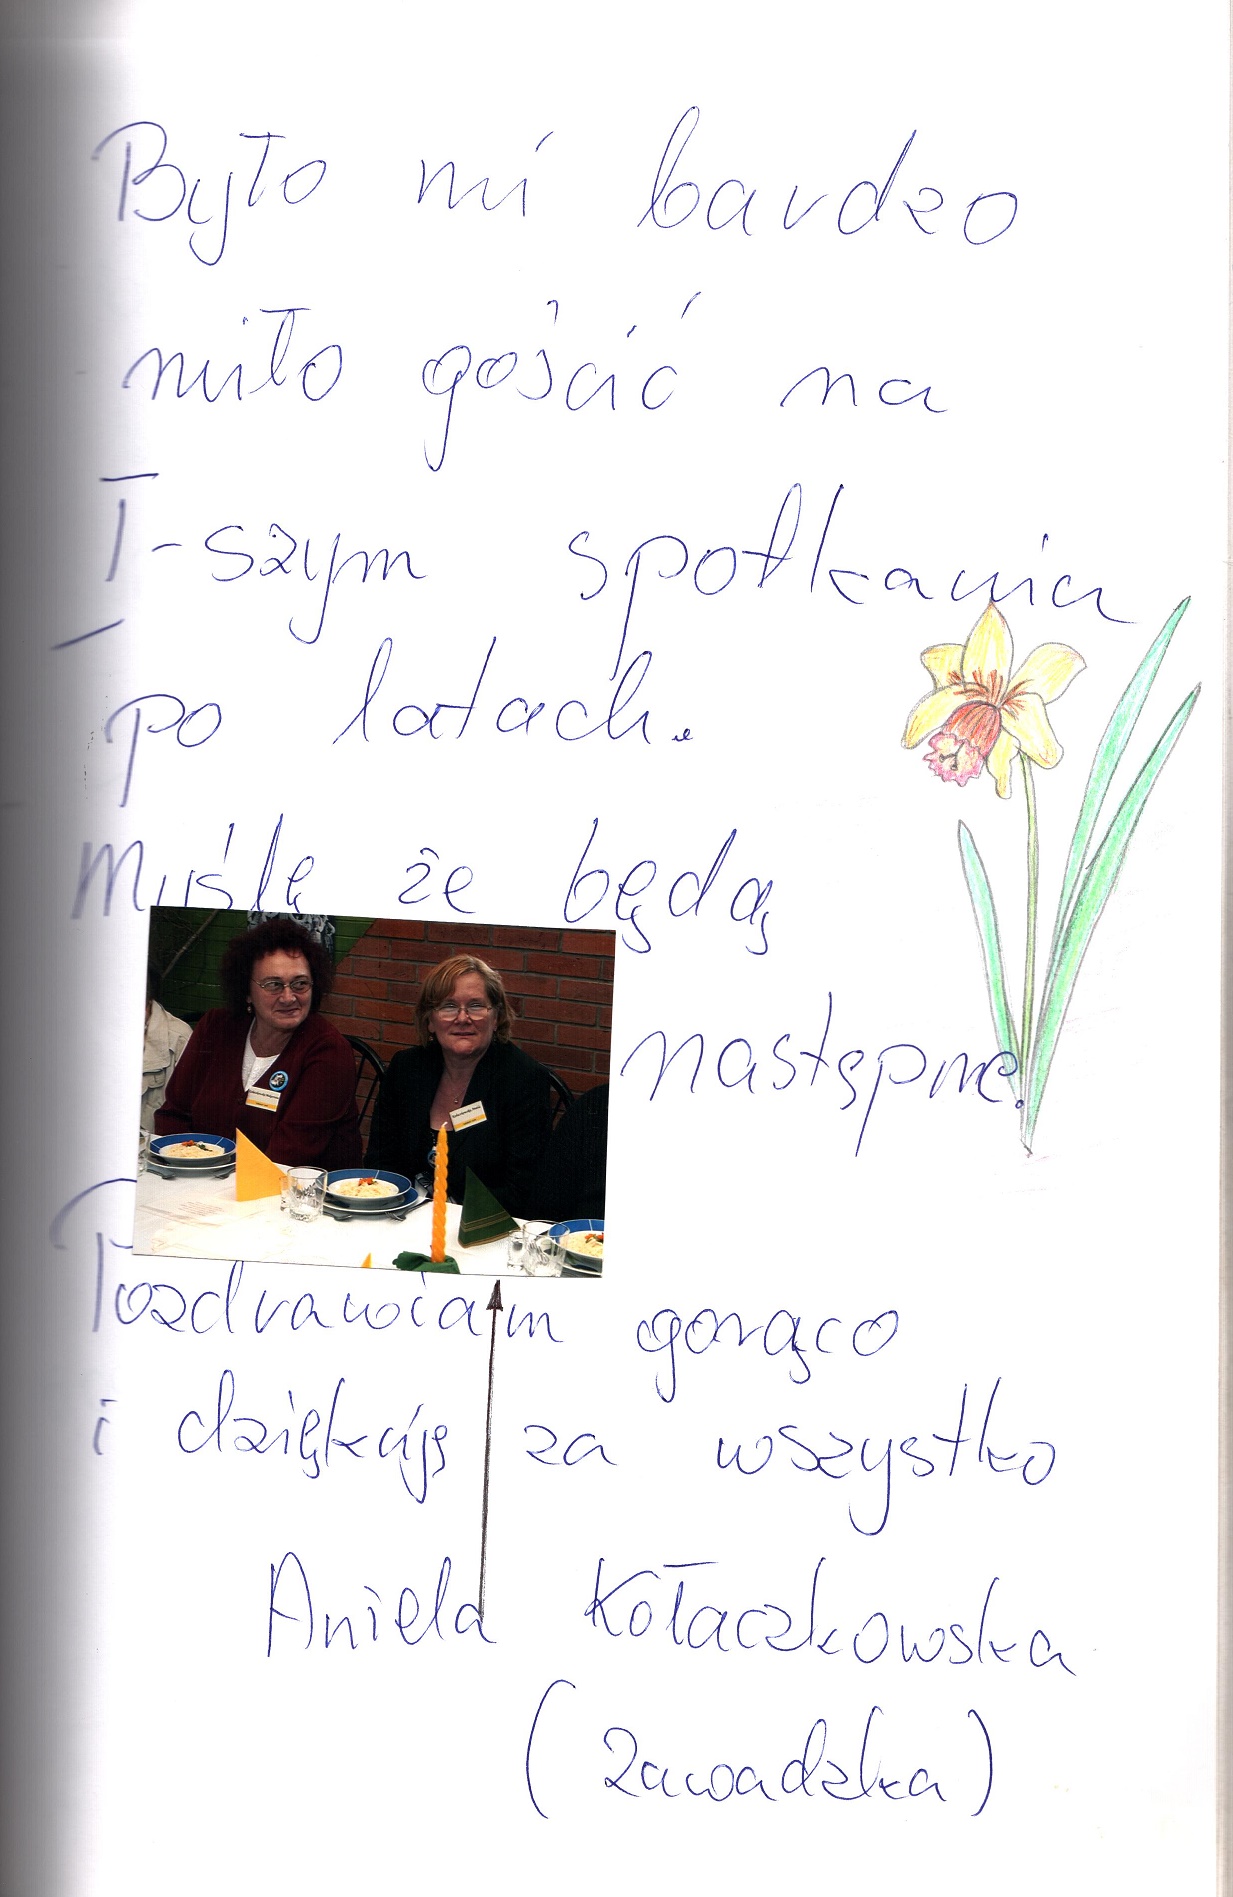 Było mi bardzo
miło gościć na
I-szym spotkaniu
po latach.
Myślę że będą
następne.
Pozdrawiam gorąco
i dziękuję za wszystko
Aniela Kołaczkowska
(Zawadzka)